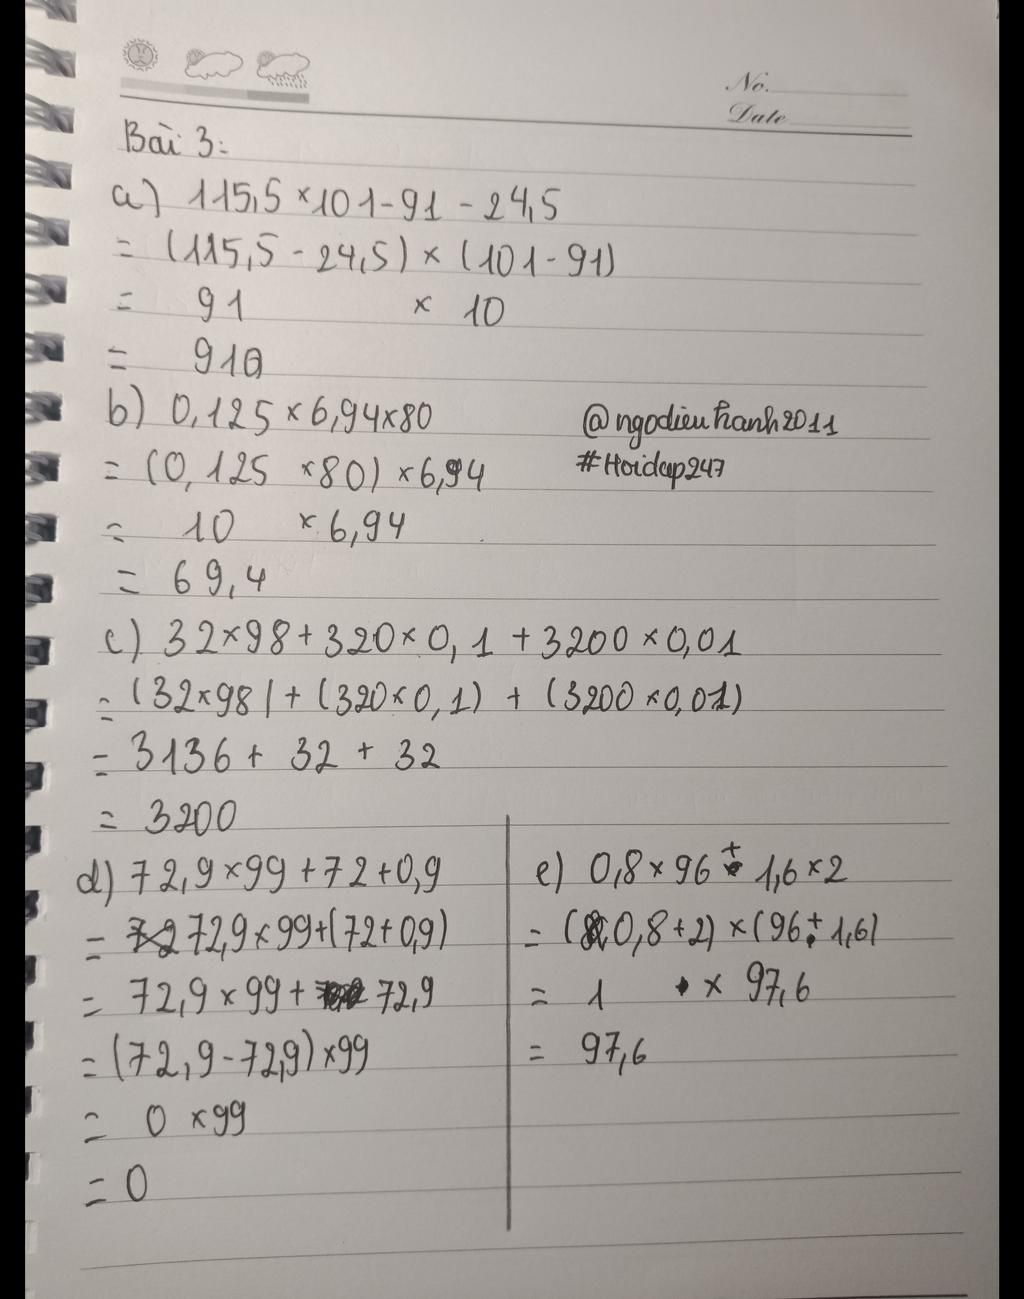 No.
Date
Bài 3:
a) 115,5 × 101 - 91 - 24,5
= (115,5 - 24,5) × (101 - 91)
= 91 × 10
= 910
b) 0,125 × 6,94 × 80
= (0,125 × 80) × 6,94
= 10 × 6,94
= 69,4
@ngodieuhanh2011
#Hoidap247
c) 32 × 98 + 320 × 0,1 + 3200 × 0,01
= (32 × 98) + (320 × 0,1) + (3200 × 0,01)
= 3136 + 32 + 32
= 3200
d) 72,9 × 99 + 72 + 0,9
= 72,9 × 99 + (72 + 0,9)
= 72,9 × 99 + 72,9
= (72,9 - 72,9) × 99
= 0 × 99
= 0
e) 0,8 × 96 + 1,6 × 2
= (0,8 + 2) × (96 + 1,6)
= 1 × 97,6
= 97,6